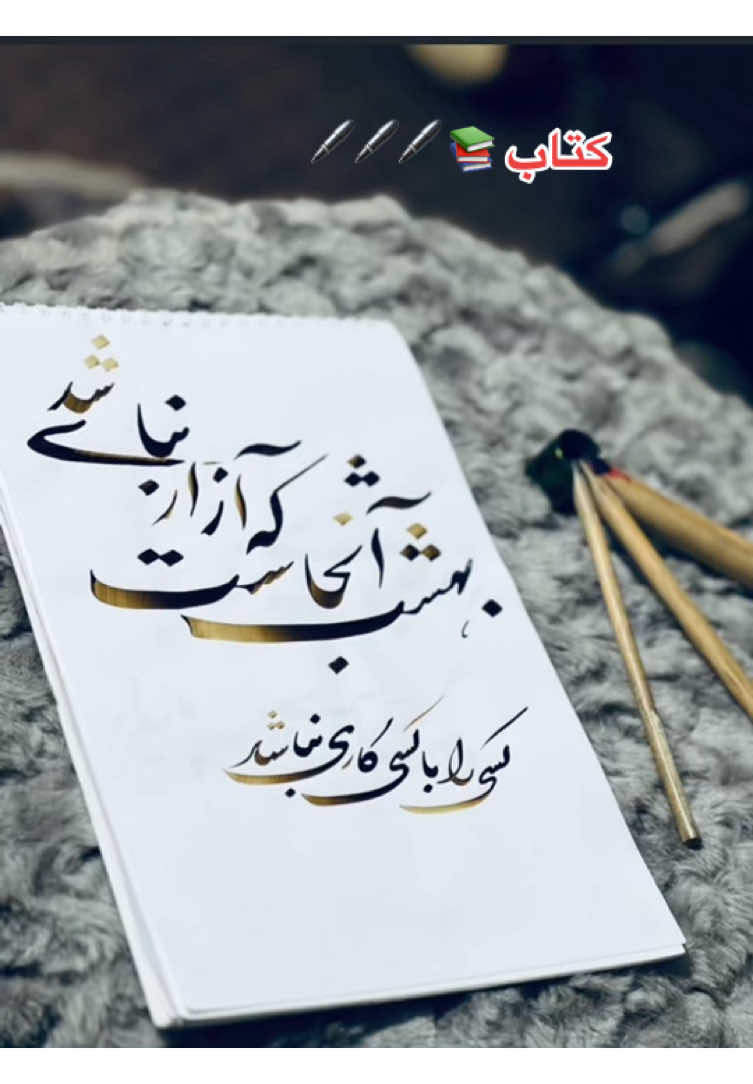 کتاب 📚🖋️🖋️🖋️
بهشت آنجاست که آزار نباشد
کسی را با کسی کاری نباشد